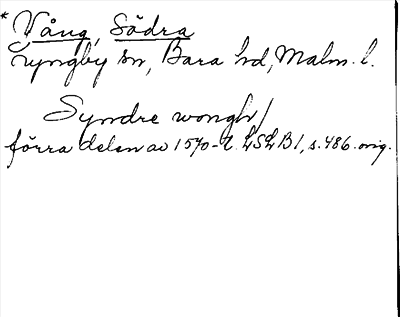 * Vång, Södra
Lyngby sn, Bara hd, Malm. l.
Syndre wongh /
förra delen av 1570-t. LSLB1, s. 486. orig.